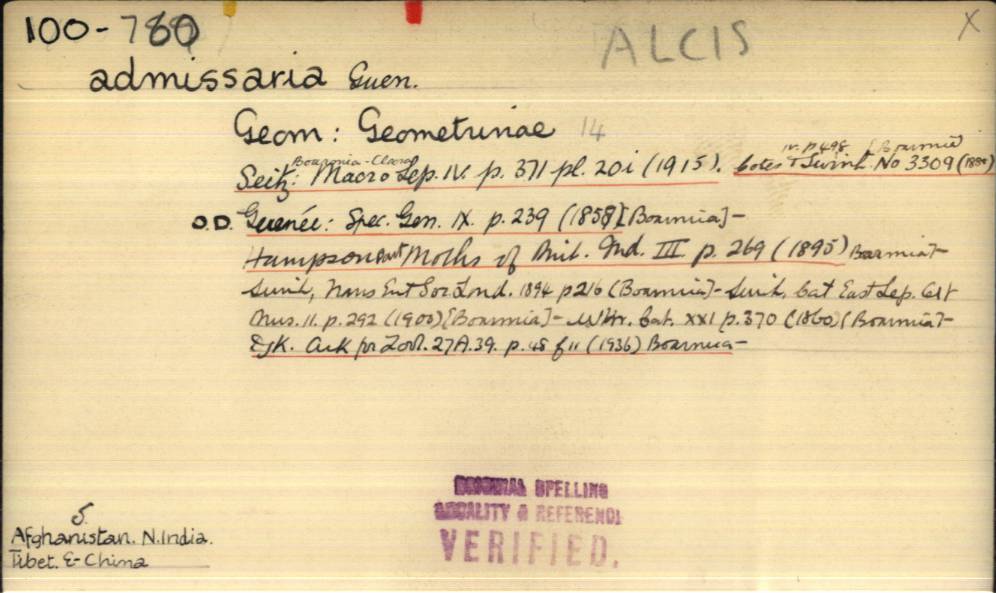 100-780 ALCIS X
admissaria Guen.
Geom: Geometrinae 14
Boarmia- IV. p 498 [Boarmia
Seitz: Macro Lep. IV. p. 371 pl. 20i (1915). Cotes & Swinh. No 3309
O.D. Guenée: Spec. Gen. IX. p. 239 (1858) [Boarmia]-
Hampson Moths of Brit. Ind. III p. 269 (1895) Boarmia-
Swinh, Trans Ent Soc Lond. 1894 p216 (Boarmia)- Swinh, Cat East Lep.
Mus. II. p. 292 (1900) [Boarmia]- Wlkr. Cat. XXI p. 370 (1860) (Boarmia]-
Ark för Zool. 27A.39. p. 48 f 11 (1936) Boarmia-
ORIGINAL SPELLING
LOCALITY & REFERENCE
VERIFIED.
S.
Afghanistan. N.India.
Tibet. E-China